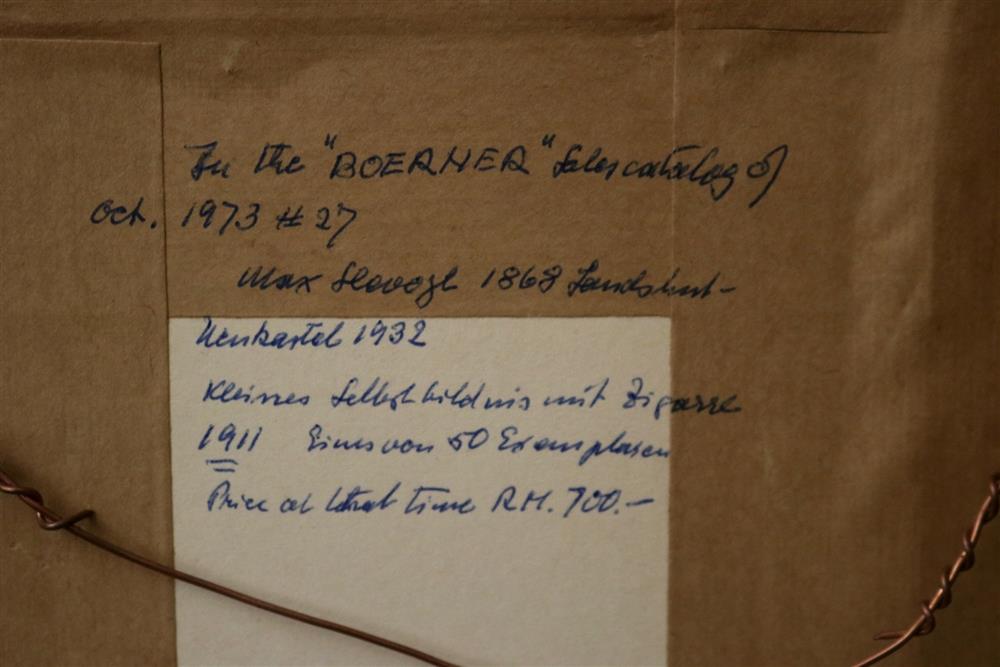 In the "BOERNER" Salescatalog of
Oct. 1973 # 27
Max Slevogt 1868 Landshut-
Neukastel 1932
Kleines Selbstbildnis mit Zigarre
1911 Eines von 50 Exemplaren
Price at that time RM. 700.-